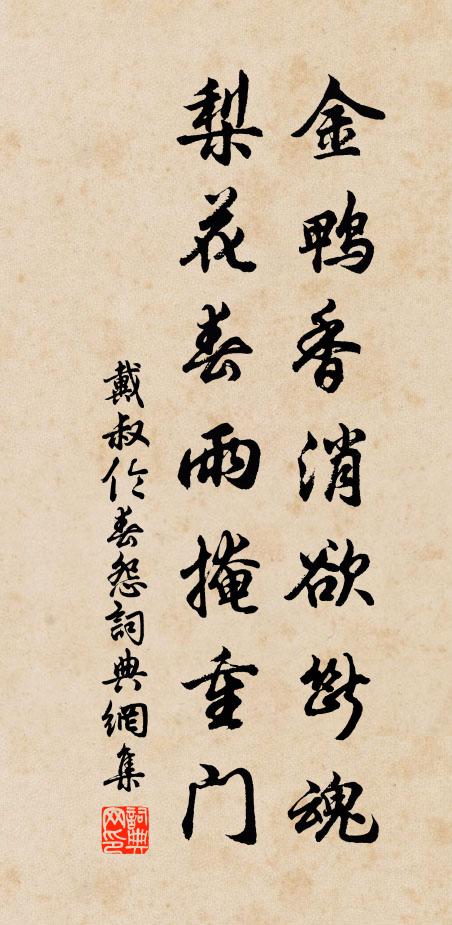 金鸭香消欲断魂
梨花春雨掩重门
戴叔伦春怨詞典網集
詞典网印